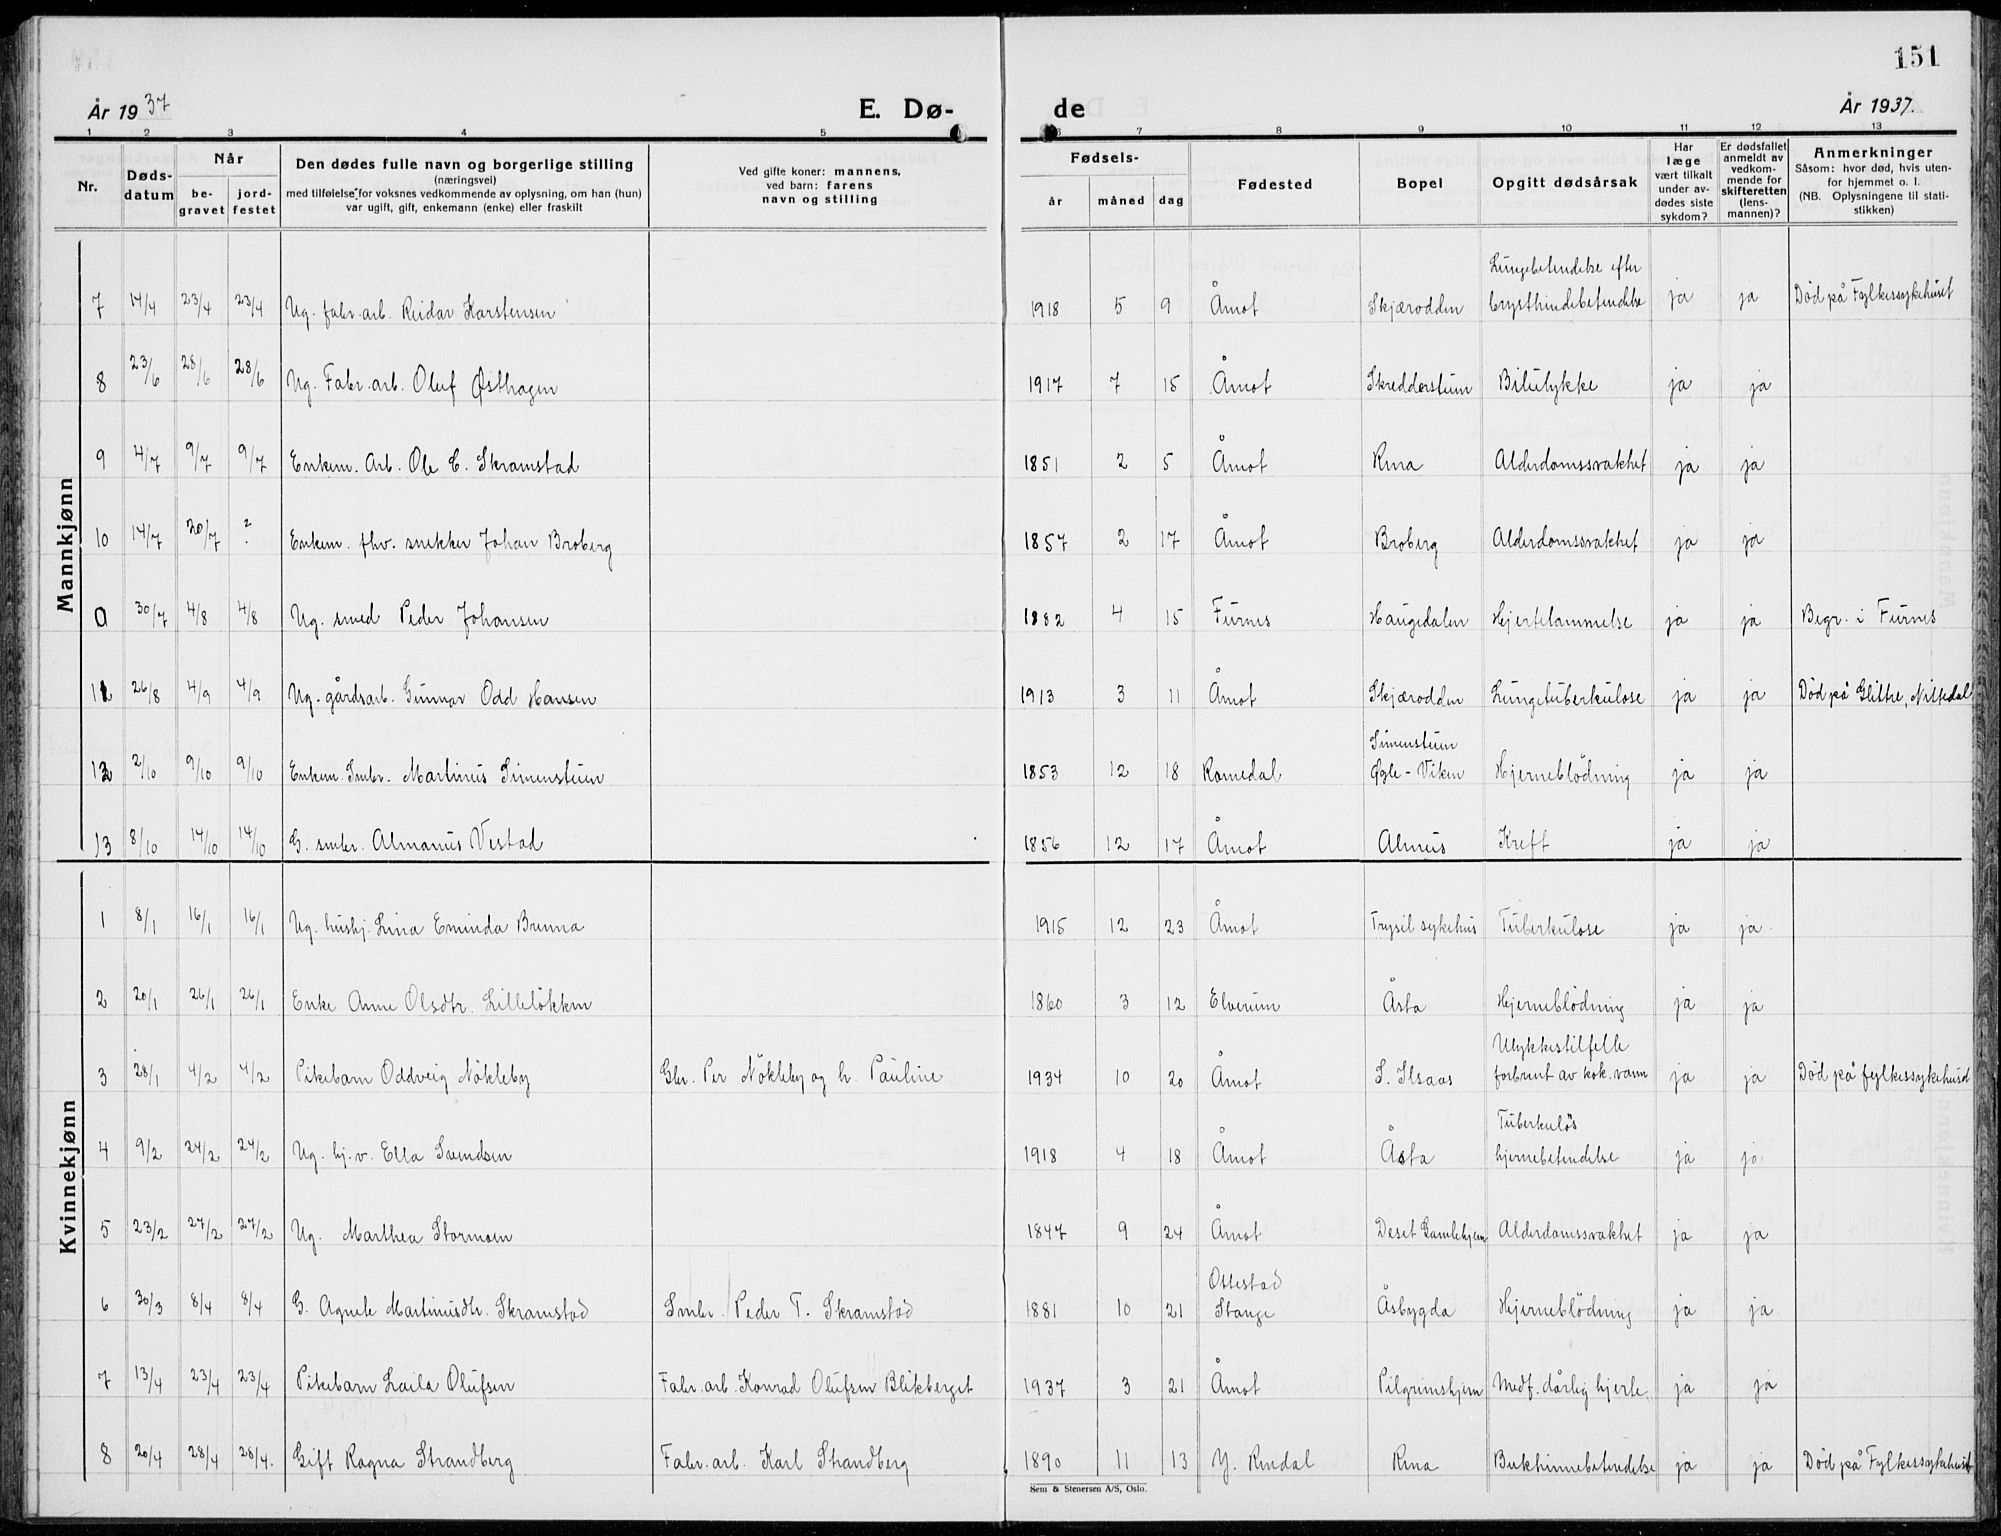 151
År 1937 E. Dø- de År 1937.
1 2 3 4 5 6 7 8 9 10 11 12 13
Nr. Døds-datum Når be-gravet jord-festet Den dødes fulle navn og borgerlige stilling (næringsvei) med tilføielse for voksnes vedkommende av oplysning, om han (hun) var ugift, gift, enkemann (enke) eller fraskilt Ved gifte koner: mannens, ved barn: farens navn og stilling Fødsels- år måned dag Fødested Bopel Opgitt dødsårsak Har læge vært tilkalt under av-dødes siste sykdom? Er dødsfallet anmeldt av vedkom-mende for skifteretten (lens-mannen)? Anmerkninger Såsom: hvor død, hvis uten-for hjemmet o. l. (NB. Oplysningene til stati-stikken)
Mannkjønn
7 14/4 23/4 23/4 Ug. fabr. arb. Reidar Karstensen 1918 5 9 Åmot Skjærodden Lungebetendelse efter brysthindebetendelse ja ja Død på Fylkessykehuset
8 23/6 28/6 28/6 Ug. Fabr. arb. Oluf Østhagen 1917 7 15 Åmot Skredderstuen Bilulykke ja ja
9 4/7 9/7 9/7 Enkem. Arb. Ole C. Skramstad 1851 2 5 Åmot Rena Alderdomssvakhet ja ja
10 14/7 20/7 ? Enkem. fhv. snekker Johan Broberg 1857 2 17 Åmot Broberg Alderdomssvakhet ja ja
0 30/7 4/8 4/8 Ug. smed Peder Johansen 1882 4 15 Furnes Haugedalen Hjertelammelse ja ja Begr. i Furnes
11 26/8 4/9 4/9 Ug. gårdsarb. Gunnar Odd Hansen 1913 3 11 Åmot Skjærodden Lungetuberkulose ja ja Død på Glittre, Nittedal
12 2/10 9/10 9/10 Enkem. Smbr. Martinus Simenstuen 1853 12 18 Romedal Simenstuen Ögle-Viken Hjerneblödning ja ja
13 8/10 14/10 14/10 G. smbr. Almanus Vestad 1856 12 17 Åmot Alnus Kreft ja ja
Kvinnekjønn
1 8/1 16/1 16/1 Ug. hushj. Lina Eminda Brenna 1915 12 23 Åmot Trysil sykehus Tuberkulose ja ja.
2 20/1 26/1 26/1 Enke Anne Olsdtr. Lilleløkken 1860 3 12 Elverum Åsta Hjerneblödning ja ja
3 28/1 4/2 4/2 Pikebarn Oddveig Nökleby Gbr. Per Nökleby og h. Pauline 1934 10 20 Åmot S. Ilsaas Ulykkestilfelle forbrent av kok. vann ja ja Død på fylkessykehuset
4 9/2 24/2 24/2 Ug. hj. v. Ella Svendsen 1918 4 18 Åmot Åsta Tuberkuløs hjernebetendelse ja ja
5 23/2 27/2 27/2 Ug. Marthea Stormoen 1847 9 24 Åmot Deset Gamlehjem Alderdomssvakhet ja ja
6 30/3 8/4 8/4 G. Agnete Martinusdtr. Skramstad Smbr. Peder T. Skramstad 1881 10 21 Ottestad Stange Åsbygda Hjerneblödning ja ja.
7 13/4 23/4 23/4 Pikebarn Laila Olufsen Fabr. arb. Konrad Olufsen Blikberget 1937 3 21 Åmot Pilgrimshjem Medf. dårlig hjerte. ja ja
8 20/4 28/4 28/4. Gift Ragna Strandberg Fabr. arb. Karl Strandberg 1890 11 13 Y. Rendal Rena Bukhinnebetendelse ja ja Død på Fylkessykehuset
Sem & Stenersen A/S, Oslo.